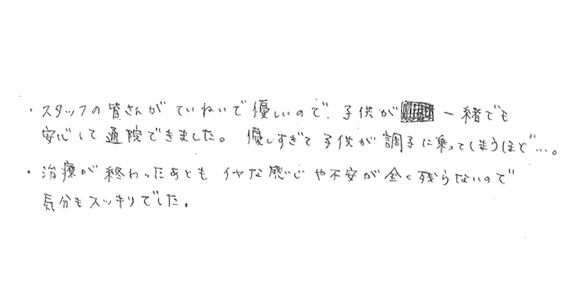 ・スタッフの皆さんがていねいで優しいので、子供が 一緒でも
安心して通院できました。優しすぎて子供が調子に乗ってしまうほど…。
・治療が終わったあとも イヤな感じや不安が全く残らないので
気分もスッキリでした。